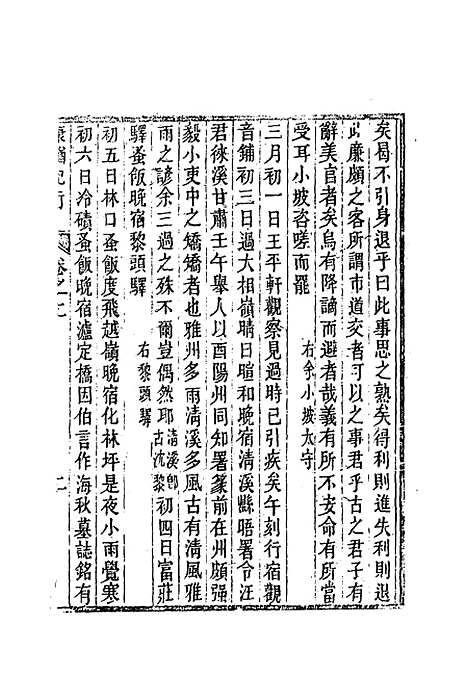 矣曷不引身退乎曰此事思之熟矣得利則進失利則退
此廉頗之客所謂市道交者可以之事君乎古之君子有
辭美官者矣烏有降謫而避者哉義有所不安命有所當
受耳小坡咨嗟而罷
右余小坡太守
三月初一日王平軒觀察見過時已引疾矣午刻行宿觀
音鋪初三日過大相嶺晴日暄和晚宿清溪縣晤署令汪
君徠溪甘肅壬午舉人以酉陽州同知署篆前在州頗强
毅小吏中之矯矯者也雅州多雨清溪多風古有清風雅
雨之諺余三過之殊不爾豈偶然耶清溪卽古沈黎初四日富莊
驛蚤飯晚宿黎頭驛
右黎頭驛
初五日林口蚤飯度飛越嶺晚宿化林坪是夜小雨覺寒
初六日冷磧蚤飯晚宿瀘定橋因伯言作海秋墓誌銘有
康輶紀行 卷之一 二